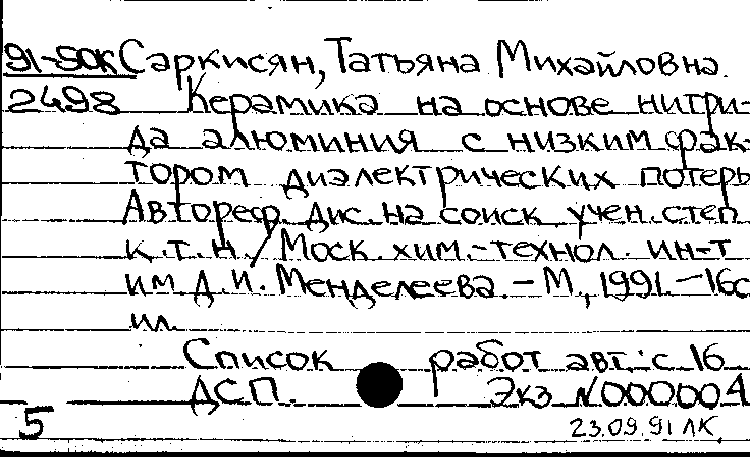 91-90К Саркисян, Татьяна Михайловна.
2498 Керамика на основе нитри-
да алюминия с низким фак-
тором диэлектрических потерь
Автореф. дис. на соиск. учен. степ
к.т.н./Моск. хим.-технол. ин-т
им. Д.И. Менделеева. - М., 1991. - 16с
ил.
Список работ авт.: с 16
ДСП. Экз N 000004
5 23.09.91 ЛК.